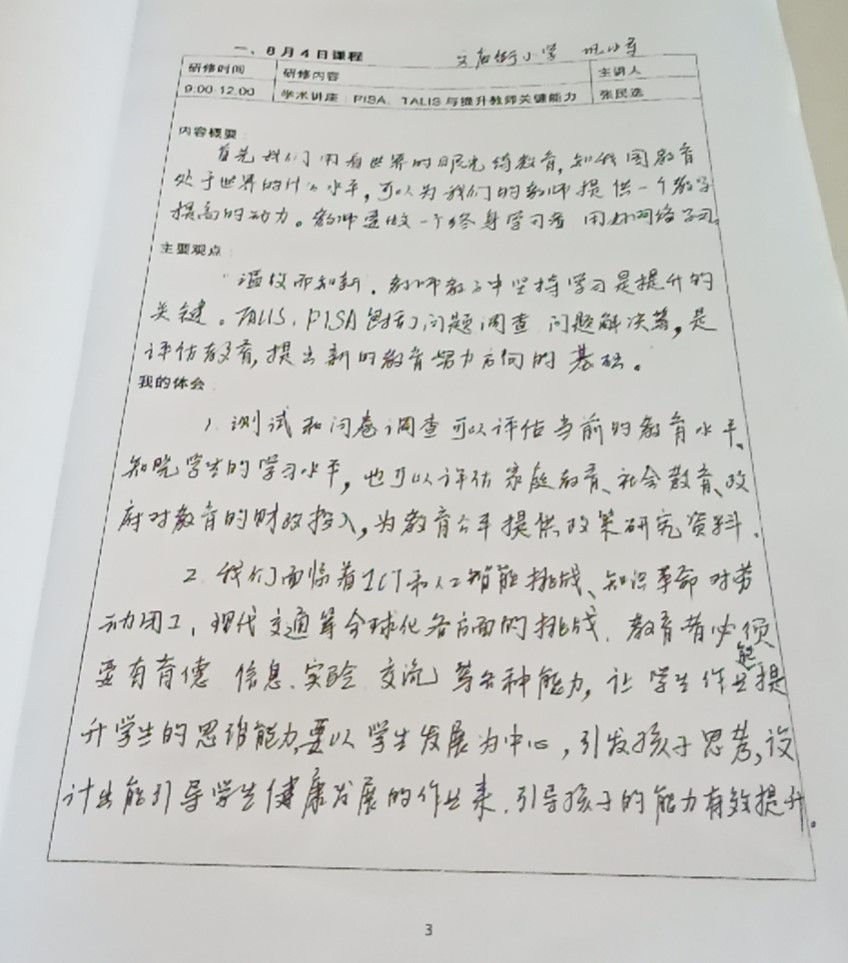 一、8月4日课程 文庙街小学
研修时间 研修内容 主讲人
9:00-12:00 学术讲座：PISA、TALIS与提升教师关键能力 张民选
内容概要
首先我们用看世界的眼光待教育，知我国教育
处于世界的什么水平，可以为我们的教师提供一个教学
提高的动力。教师要做一个终身学习者 用好网络学习。
主要观点
温故而知新，教师教学中坚持学习是提升的
关键。TALIS、PISA包括问题调查 问题解决等，是
评估教育，提出新的教育努力方向的 基础。
我的体会
1、测试和问卷调查可以评估当前的教育水平、
知晓学生的学习水平，也可以评估 家庭教育、社会教育、政
府对教育的财政投入，为教育公平提供政策研究资料．
2、我们面临着ICT和人工智能挑战、知识革命对劳
动用工、现代交通等全球化各方面的挑战．教育者必须
要有育德 信息、实验 交流 等各种能力，让学生作业能提
升学生的思维能力，要以学生发展为中心，引发孩子思考，设
计出能引导学生健康发展的作业来．引导孩子的能力有效提升。
3